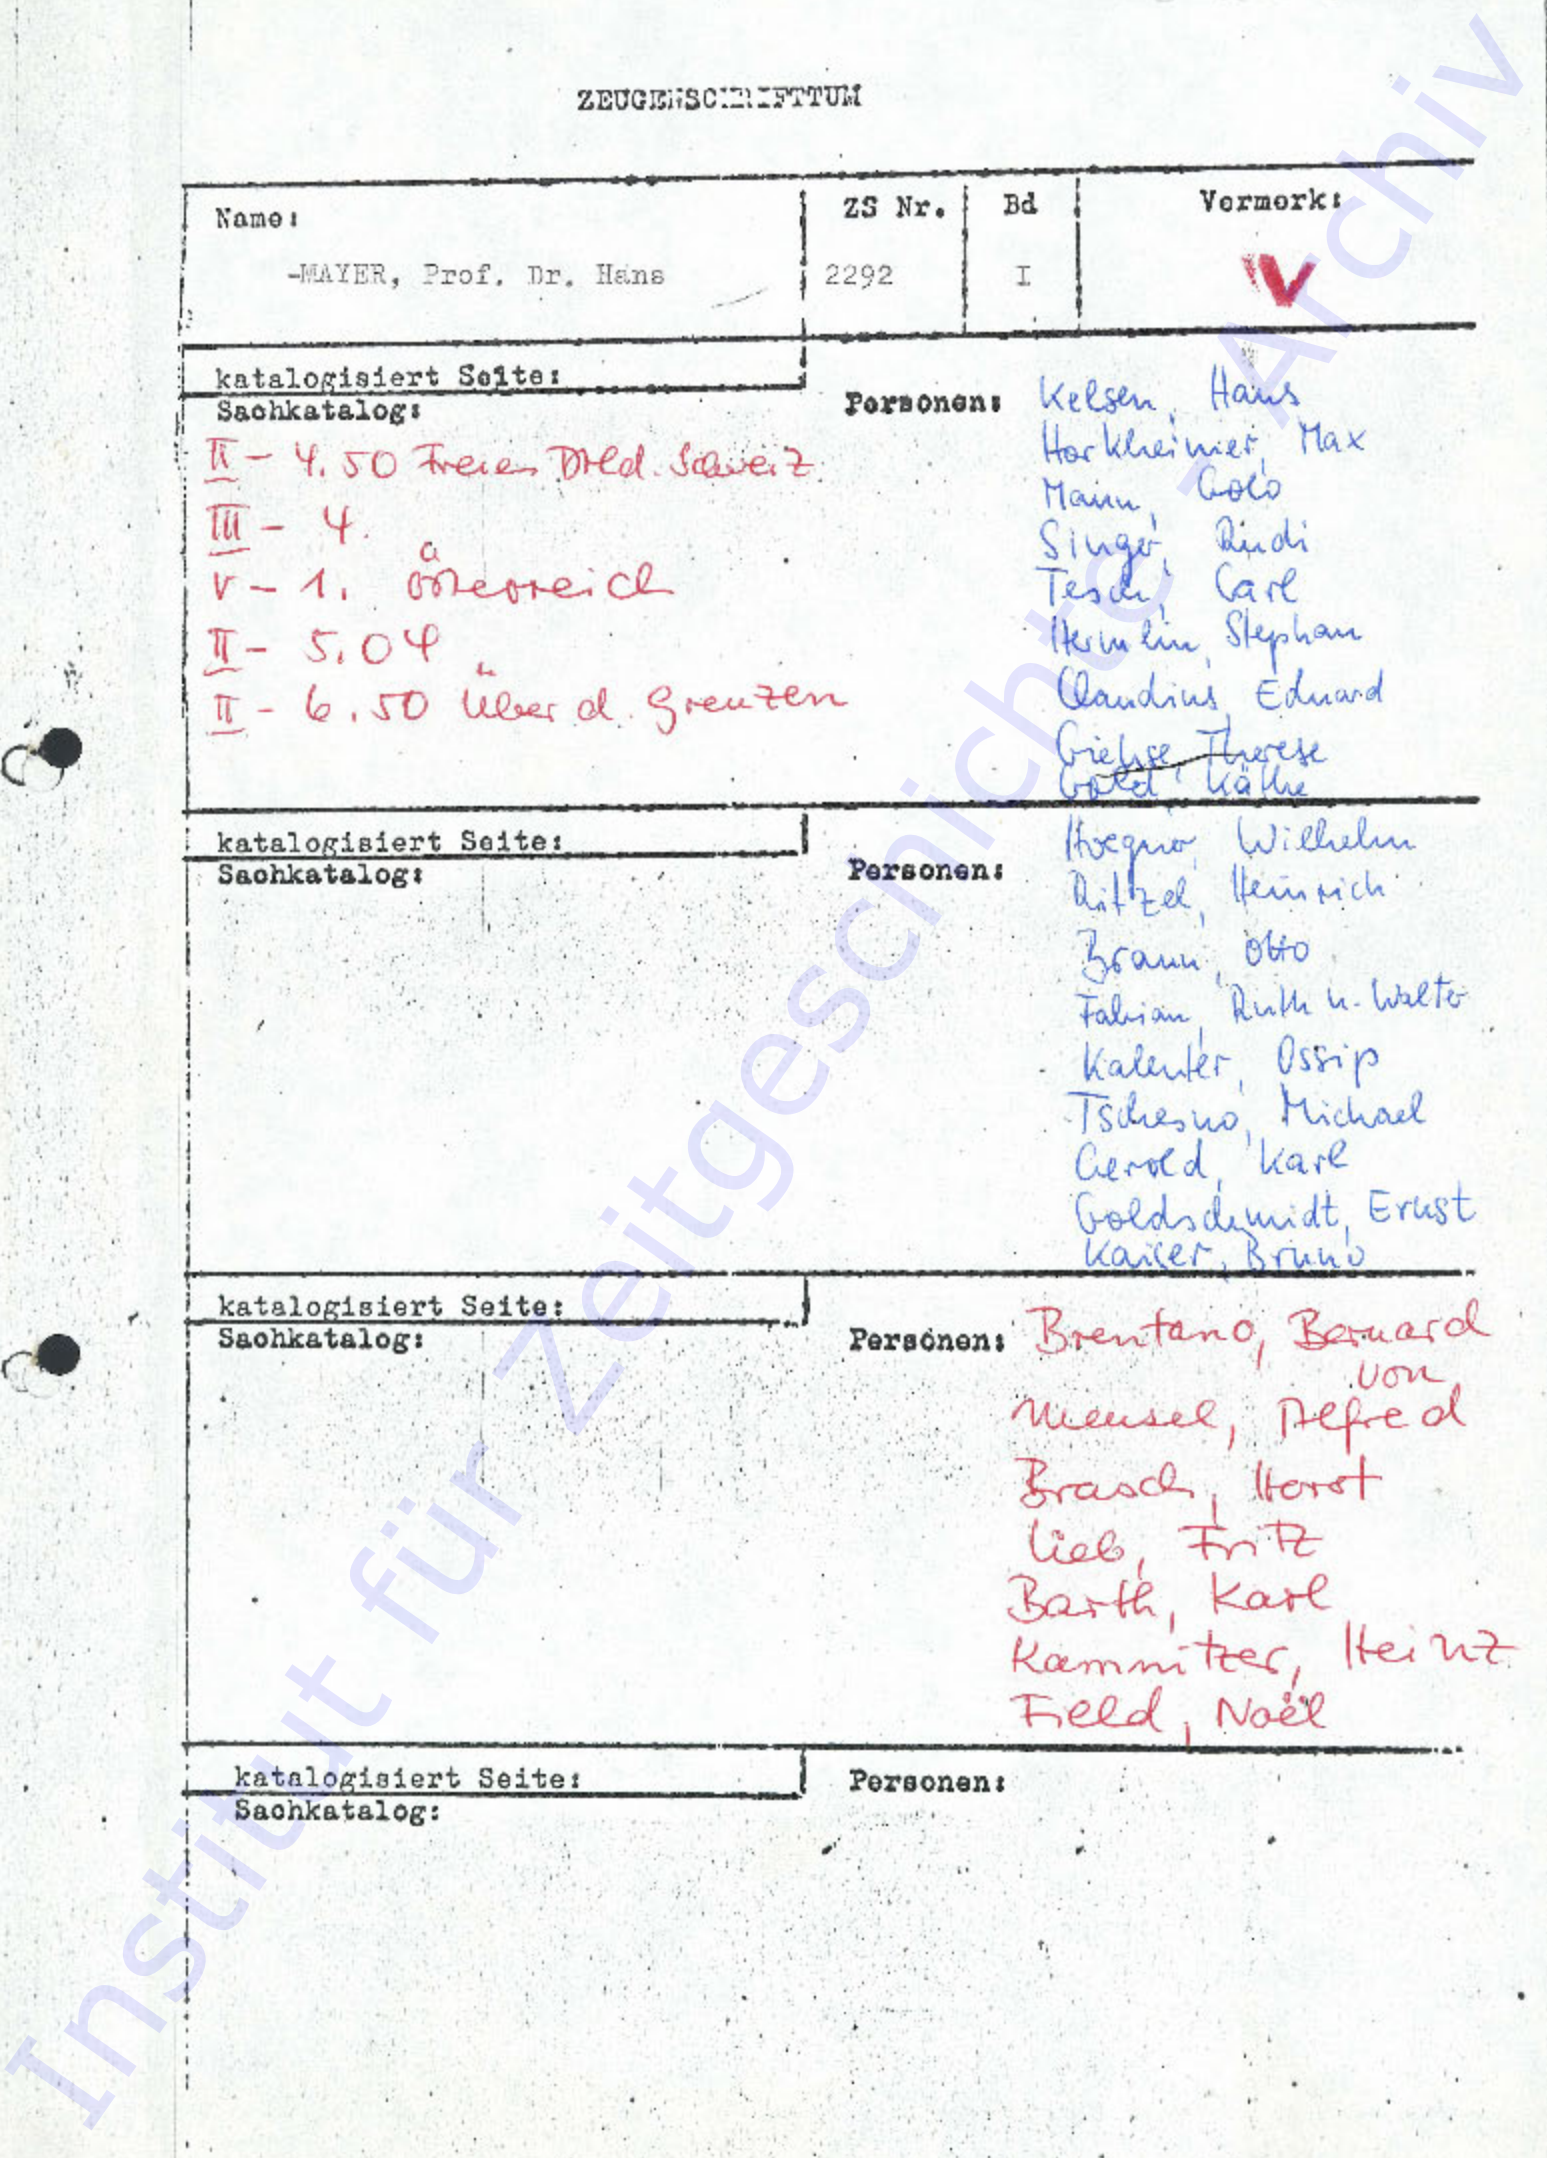 ZEUGENSCHRIFTTUM
Name: ZS Nr. Bd Vermerk:
-MAYER, Prof. Dr. Hans 2292 I V
katalogisiert Seite:
Sachkatalog:
II - 4.50 Freies Dtld. Schweiz
III - 4.
V - 1. Österreich
II - 5.04
II - 6.50 Über d. Grenzen
Personen: Kelsen, Hans
Horkheimer, Max
Mann, Golo
Singer, Rudi
Tesch, Carl
Hermlin, Stephan
Claudius, Eduard
Giehse, Therese
Gold, Käthe
katalogisiert Seite:
Sachkatalog:
Personen:
Hoegner, Wilhelm
Ritzel, Heinrich
Braun, Otto
Fabian, Ruth u. Walter
Kalenter, Ossip
Tschesno, Michael
Gerold, Karl
Goldschmidt, Ernst
Kaiser, Bruno
katalogisiert Seite:
Sachkatalog:
Personen: Brentano, Bernard
von
Meusel, Alfred
Brasch, Horst
Lieb, Fritz
Barth, Karl
Kamnitzer, Heinz
Field, Noël
katalogisiert Seite:
Sachkatalog:
Personen:
Institut für Zeitgeschichte - Archiv